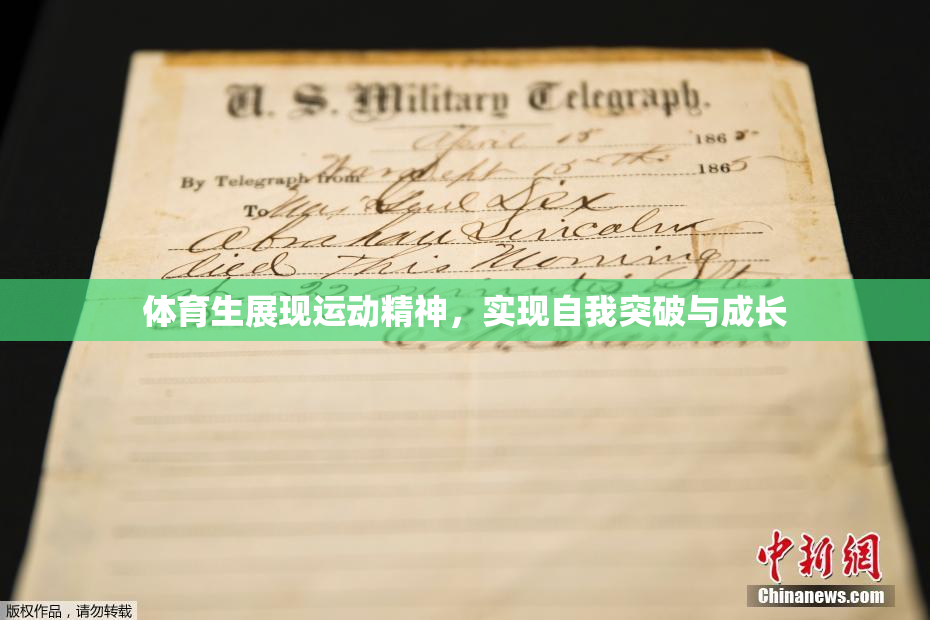 U. S. Military Telegraph.
April 15 1865
By Telegraph from War Dept 15th 1865
To Maj Genl Dix
Abraham Lincoln
died This Morning
at 22 minutes after
体育生展现运动精神，实现自我突破与成长
E. M. Stanton
中新网
Chinanews.com
版权作品，请勿转载